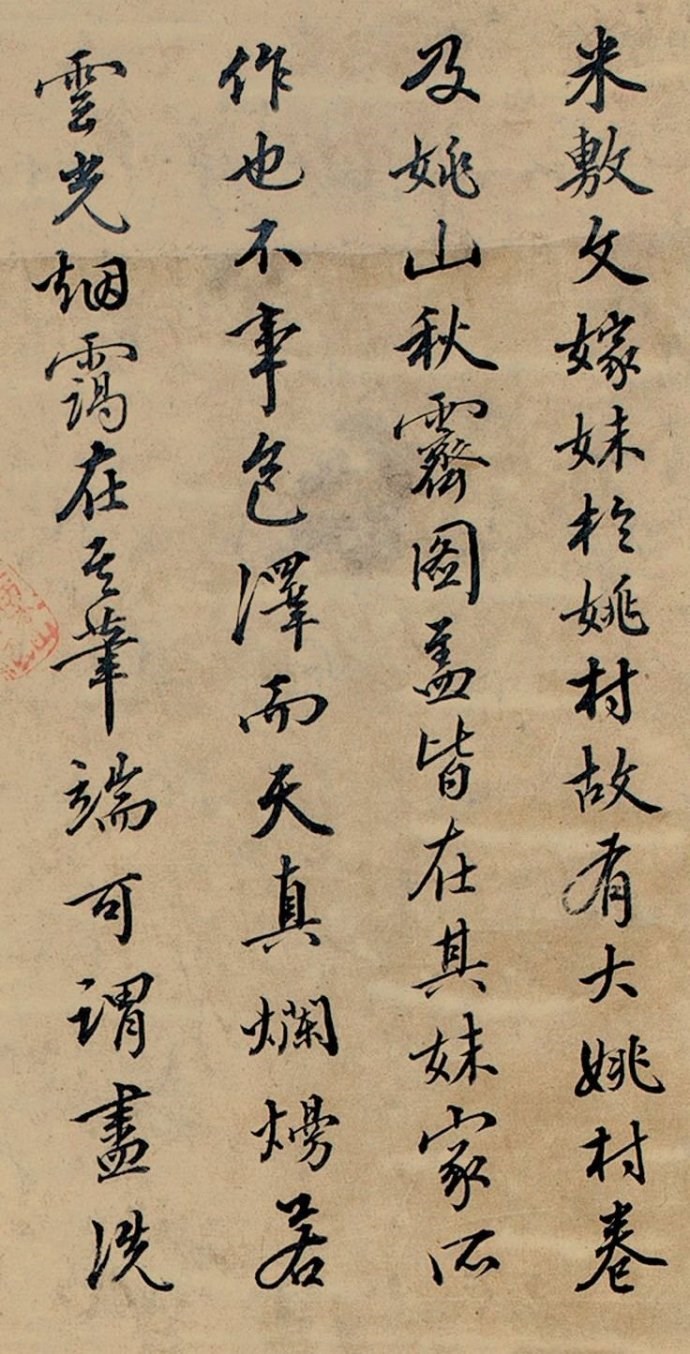 米敷文嫁妹於姚村故有大姚村卷
及姚山秋霽圖盖皆在其妹家所
作也不事色澤而天真爛熳若
雲光烟靄在其筆端可謂盡洗